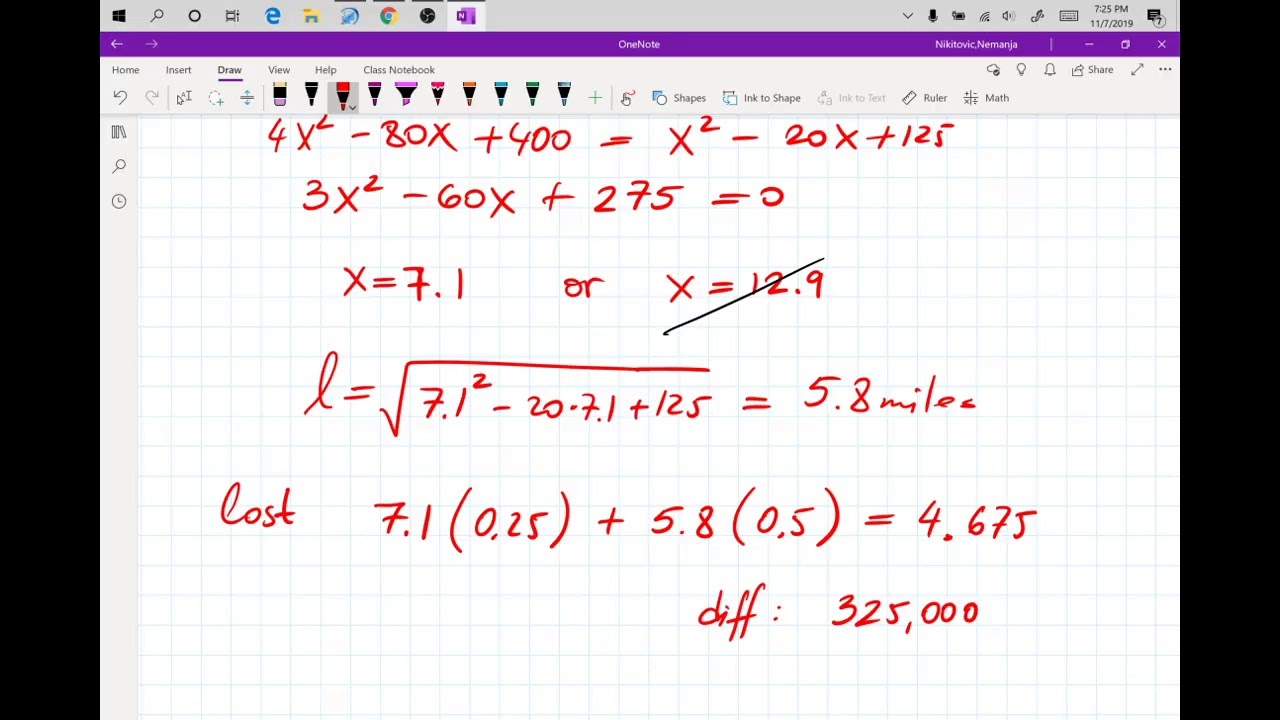 7:25 PM
11/7/2019
OneNote
Nikitovic,Nemanja
Home Insert Draw View Help Class Notebook Share
Shapes Ink to Shape Ink to Text Ruler Math
4x² - 80x + 400 = x² - 20x + 125
3x² - 60x + 275 = 0
x = 7.1 or x = 12.9
l = √7.1² - 20·7.1 + 125 = 5.8 miles
Cost 7.1(0.25) + 5.8(0.5) = 4.675
diff: 325,000